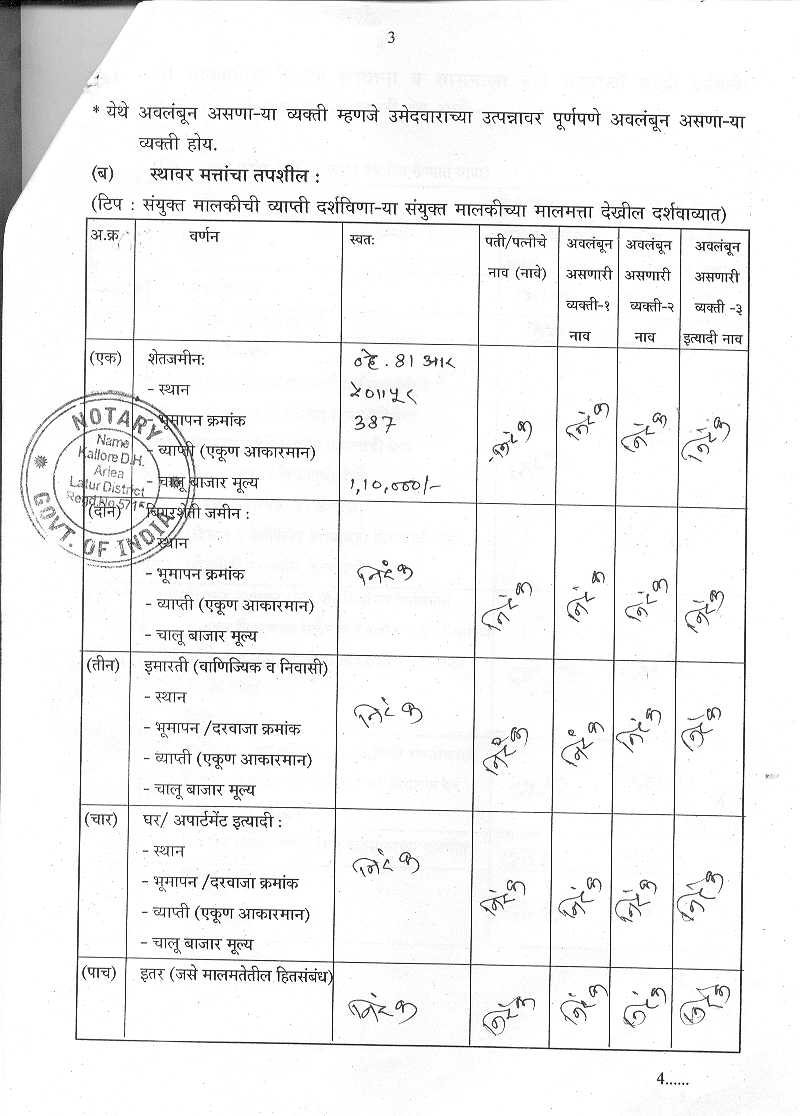 3
* येथे अवलंबून असणा-या व्यक्ती म्हणजे उमेदवाराच्या उत्पन्नावर पूर्णपणे अवलंबून असणा-या
व्यक्ती होय.
(ब) स्थावर मत्तांचा तपशील :
(टिप : संयुक्त मालकीची व्याप्ती दर्शविणा-या संयुक्त मालकीच्या मालमत्ता देखील दर्शवाव्यात)
अ.क्र वर्णन स्वतः पती/पत्नीचे नाव (नावे) अवलंबून असणारी व्यक्ती-१ नाव अवलंबून असणारी व्यक्ती-२ नाव अवलंबून असणारी व्यक्ती -३ इत्यादी नाव
(एक) शेतजमीनः ०हे. 81 आर
- स्थान
भूमापन क्रमांक 387
- व्याप्ती (एकूण आकारमान) निरंक निरंक निरंक निरंक
- चालू बाजार मूल्य 1,10,000/-
NOTARY
Name
Kallore D.H.
Ariea
Latur District
Regd.No.5715
GOVT. OF INDIA
(दोन) बिगरशेती जमीन :
- स्थान
- भूमापन क्रमांक निरंक
- व्याप्ती (एकूण आकारमान) निरंक निरंक निरंक निरंक
- चालू बाजार मूल्य
(तीन) इमारती (वाणिज्यिक व निवासी)
- स्थान
- भूमापन /दरवाजा क्रमांक निरंक निरंक निरंक निरंक निरंक
- व्याप्ती (एकूण आकारमान)
- चालू बाजार मूल्य
(चार) घर/ अपार्टमेंट इत्यादी :
- स्थान निरंक
- भूमापन /दरवाजा क्रमांक निरंक निरंक निरंक निरंक
- व्याप्ती (एकूण आकारमान)
- चालू बाजार मूल्य
(पाच) इतर (जसे मालमतेतील हितसंबंध)
निरंक निरंक निरंक निरंक निरंक
4......